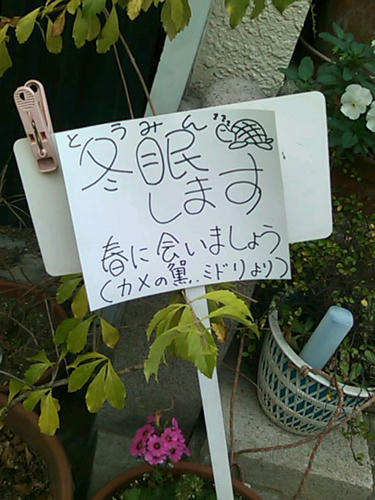 とうみん
zzz
冬眠
します
春に会いましょう
(カメの ミドリより)